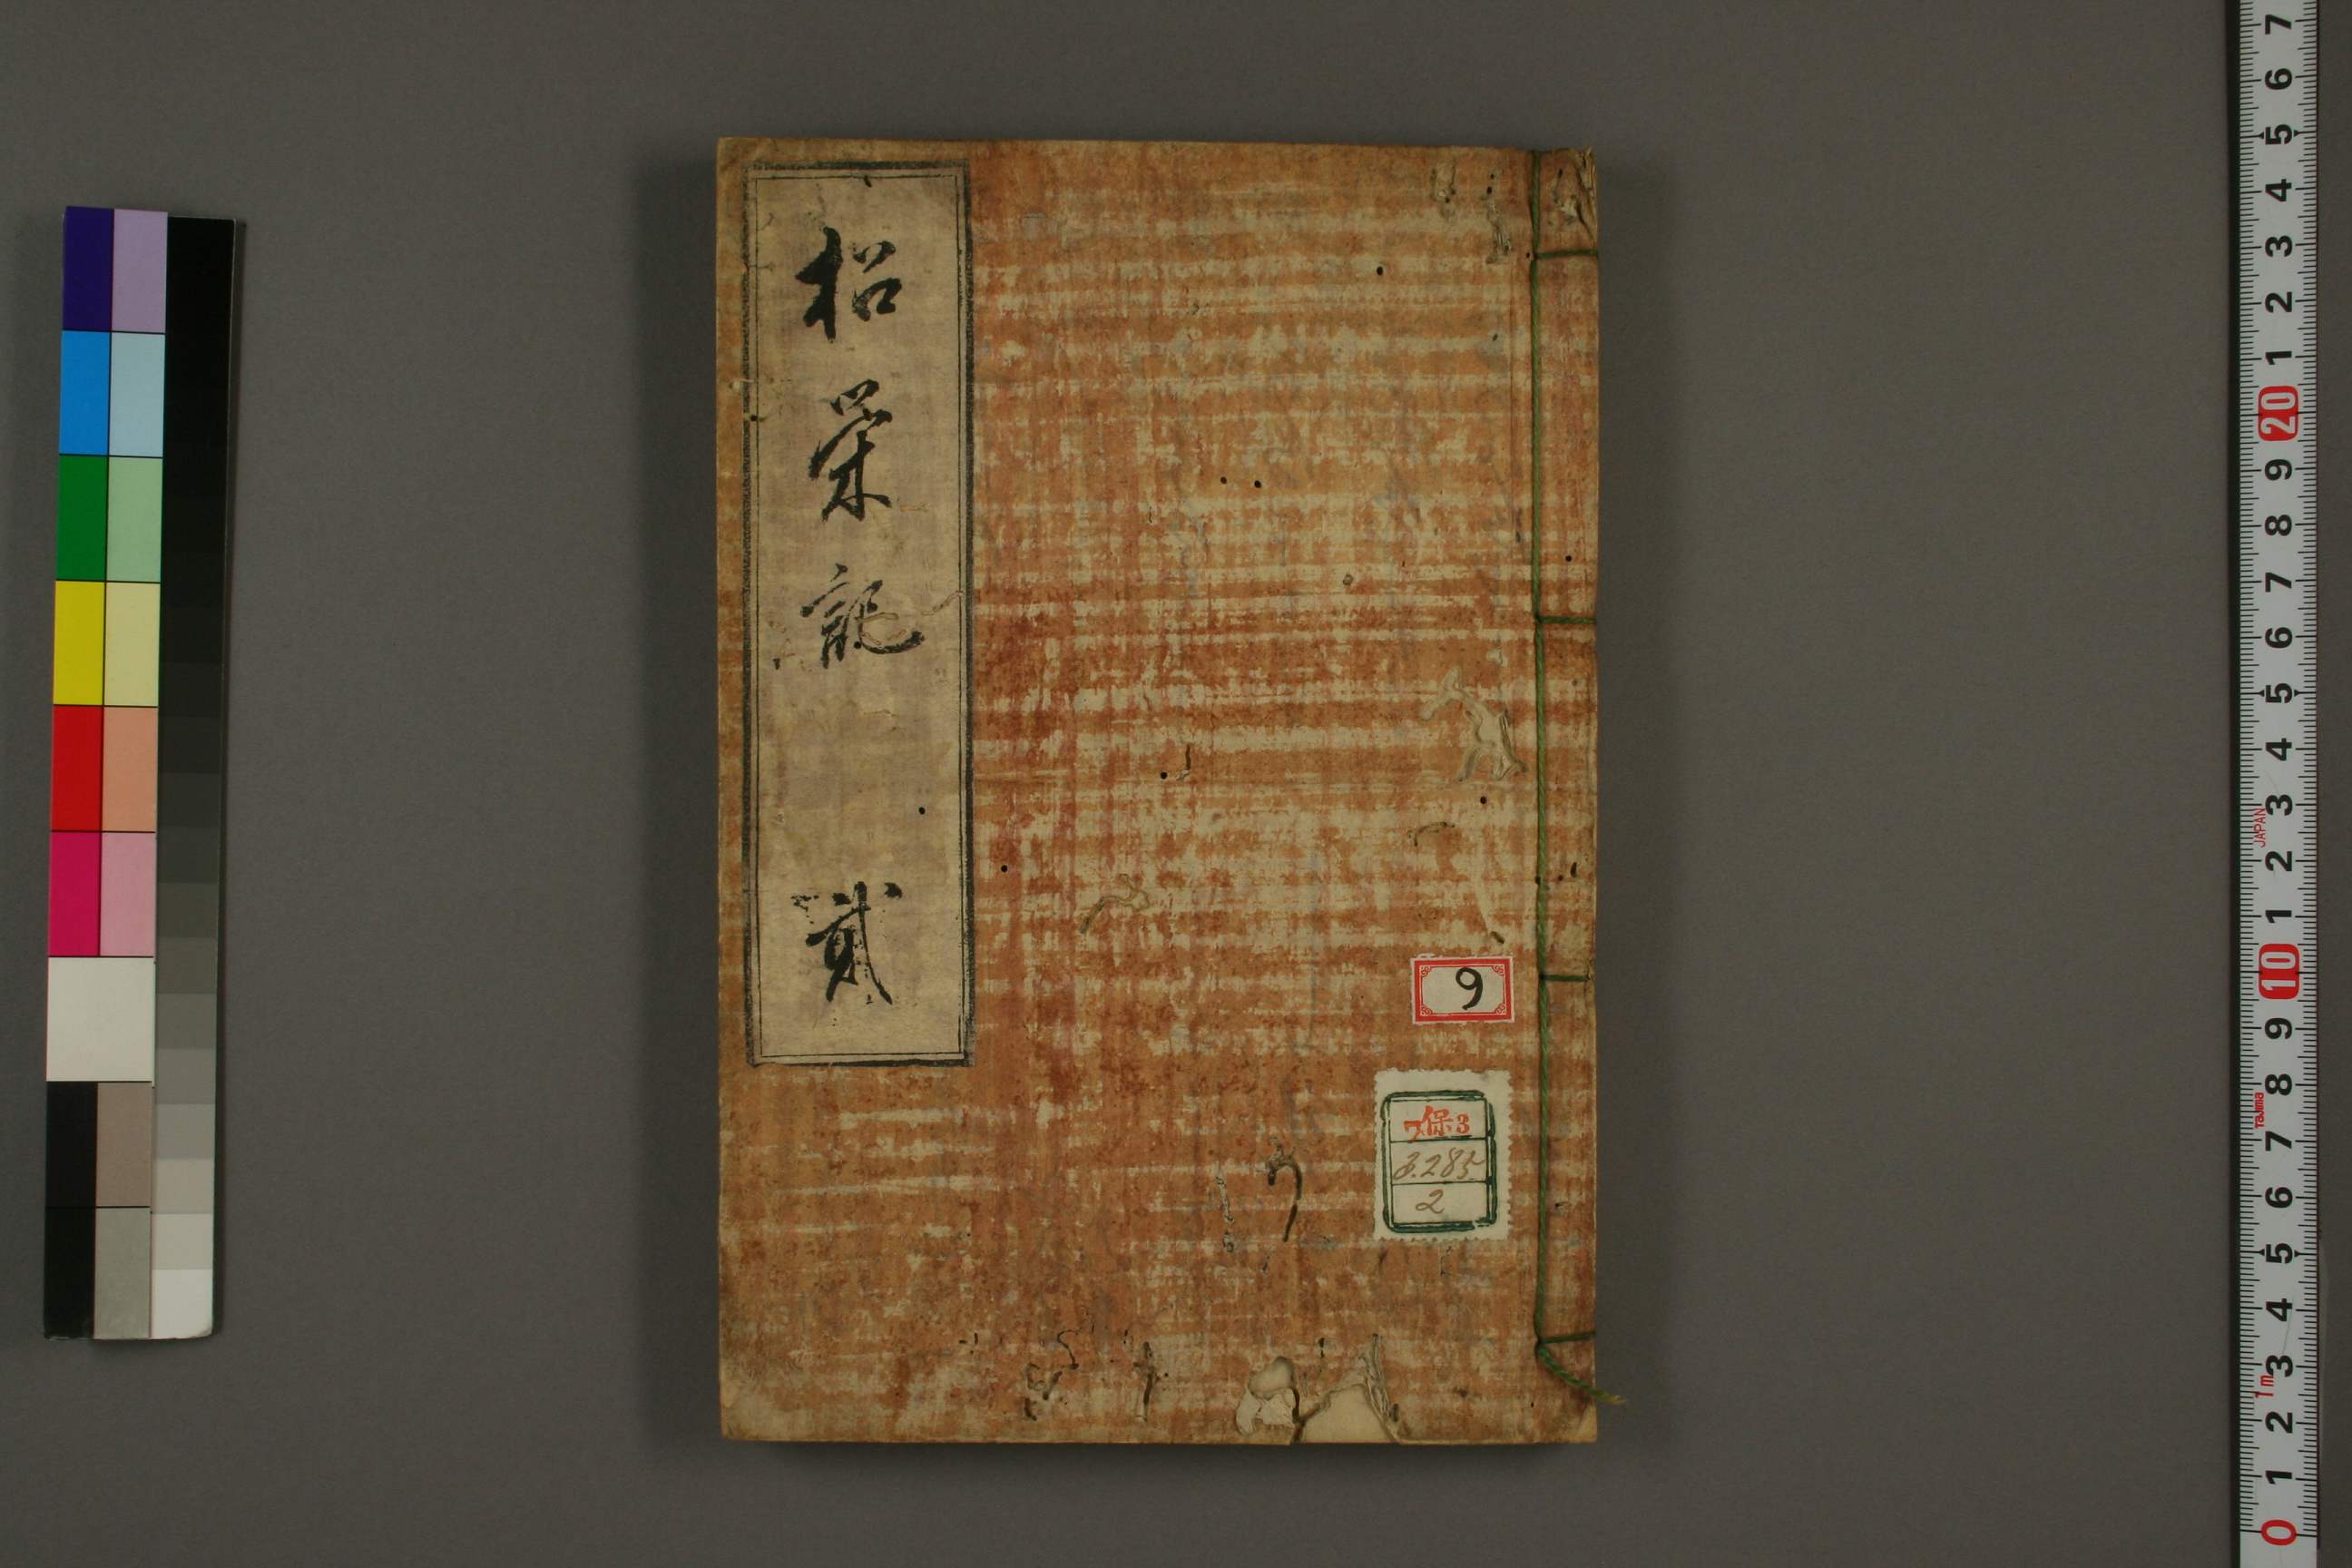 松栄記 貳
9
7保3
3.285
2
7
6
5
4
3
2
1
20
9
8
7
6
5
4
3
2
1
10
9
8
7
6
5
4
3
2
1
0
JAPAN
Tajima
1m